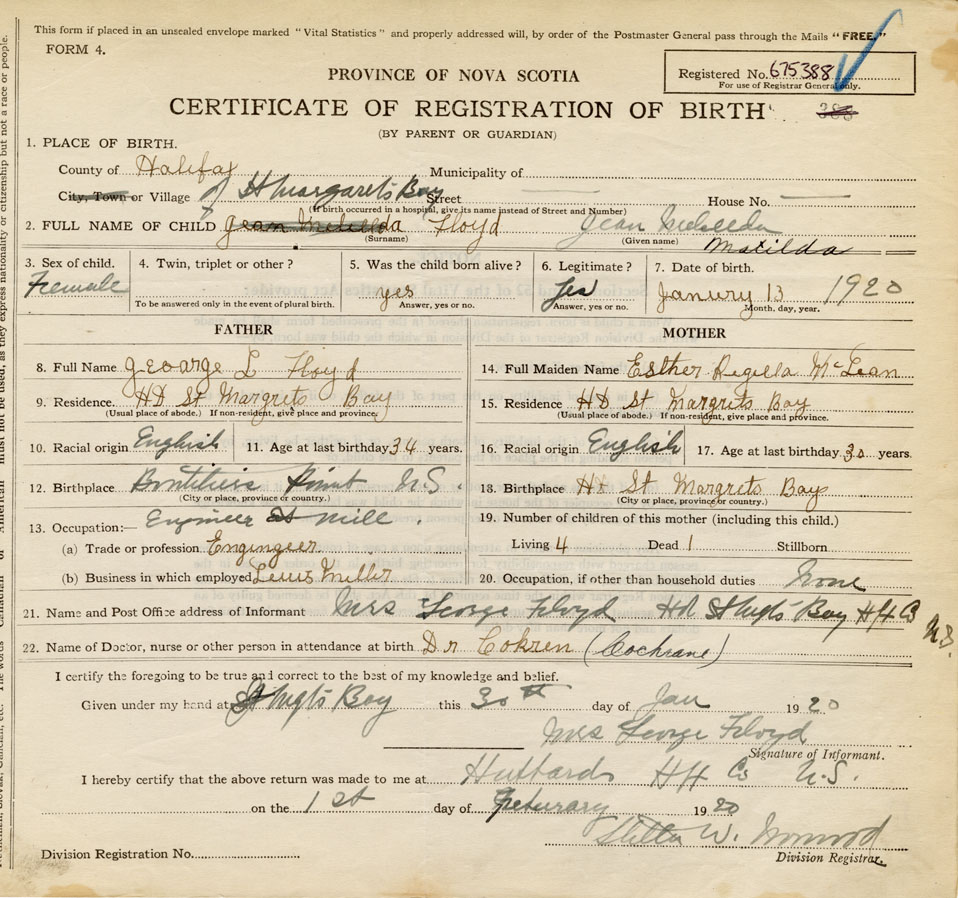 This form if placed in an unsealed envelope marked "Vital Statistics" and properly addressed will, by order of the Postmaster General pass through the Mails "FREE."
FORM 4.
PROVINCE OF NOVA SCOTIA
Registered No. 675388
For use of Registrar General only.
CERTIFICATE OF REGISTRATION OF BIRTH
(BY PARENT OR GUARDIAN)
1. PLACE OF BIRTH.
County of Halifax Municipality of
City, Town or Village of St Margarets Bay Street House No.
(If birth occurred in a hospital, give its name instead of Street and Number)
2. FULL NAME OF CHILD Floyd Jean
(Surname) (Given name) Matilda
3. Sex of child. 4. Twin, triplet or other? 5. Was the child born alive? 6. Legitimate? 7. Date of birth.
Female yes Yes Janury 13 1920
To be answered only in the event of plural birth. Answer, yes or no. Answer, yes or no. Month, day, year.
FATHER MOTHER
8. Full Name George L Floyd 14. Full Maiden Name Esther McLean
9. Residence. HD St Margrets Bay 15. Residence HD St Margrets Bay
(Usual place of abode.) If non-resident, give place and province. (Usual place of abode.) If non-resident, give place and province.
10. Racial origin English 11. Age at last birthday 34 years. 16. Racial origin English 17. Age at last birthday 30 years.
12. Birthplace Point N.S. 18. Birthplace HD St Margrets Bay
(City or place, province or country.) (City or place, province or country.)
13. Occupation:— Engineer at mill. 19. Number of children of this mother (including this child.)
(a) Trade or profession Engingeer Living 4 Dead 1 Stillborn
(b) Business in which employed Lewis Miller 20. Occupation, if other than household duties None
21. Name and Post Office address of Informant Mrs George Floyd Hd St Mgts Bay Hfx Co N.S.
22. Name of Doctor, nurse or other person in attendance at birth Dr Cokren (Cochrane)
I certify the foregoing to be true and correct to the best of my knowledge and belief.
Given under my hand at St Mgts Bay this 30th day of Jan 1920
Mrs George Floyd
Signature of Informant.
I hereby certify that the above return was made to me at Hubbards Hfx Co N.S.
on the 1st day of Feturary 1920
W.
Division Registration No. Division Registrar.